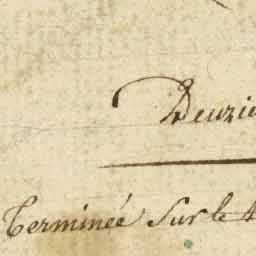 Deuzie
Terminée Sur le 4